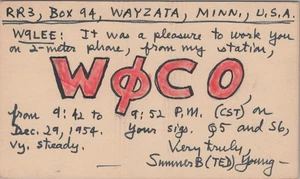 RR3, Box 94, WAYZATA, MINN., U.S.A.
W9LEE: It was a pleasure to work you
on 2-meter phone, from my station,
WØCO,
from 9:42 to 9:52 P.M. (CST), on
Dec. 29, 1954. Your sigs. Q5 and S6,
vy. steady. Very truly,
Sumner B (TED) Young —